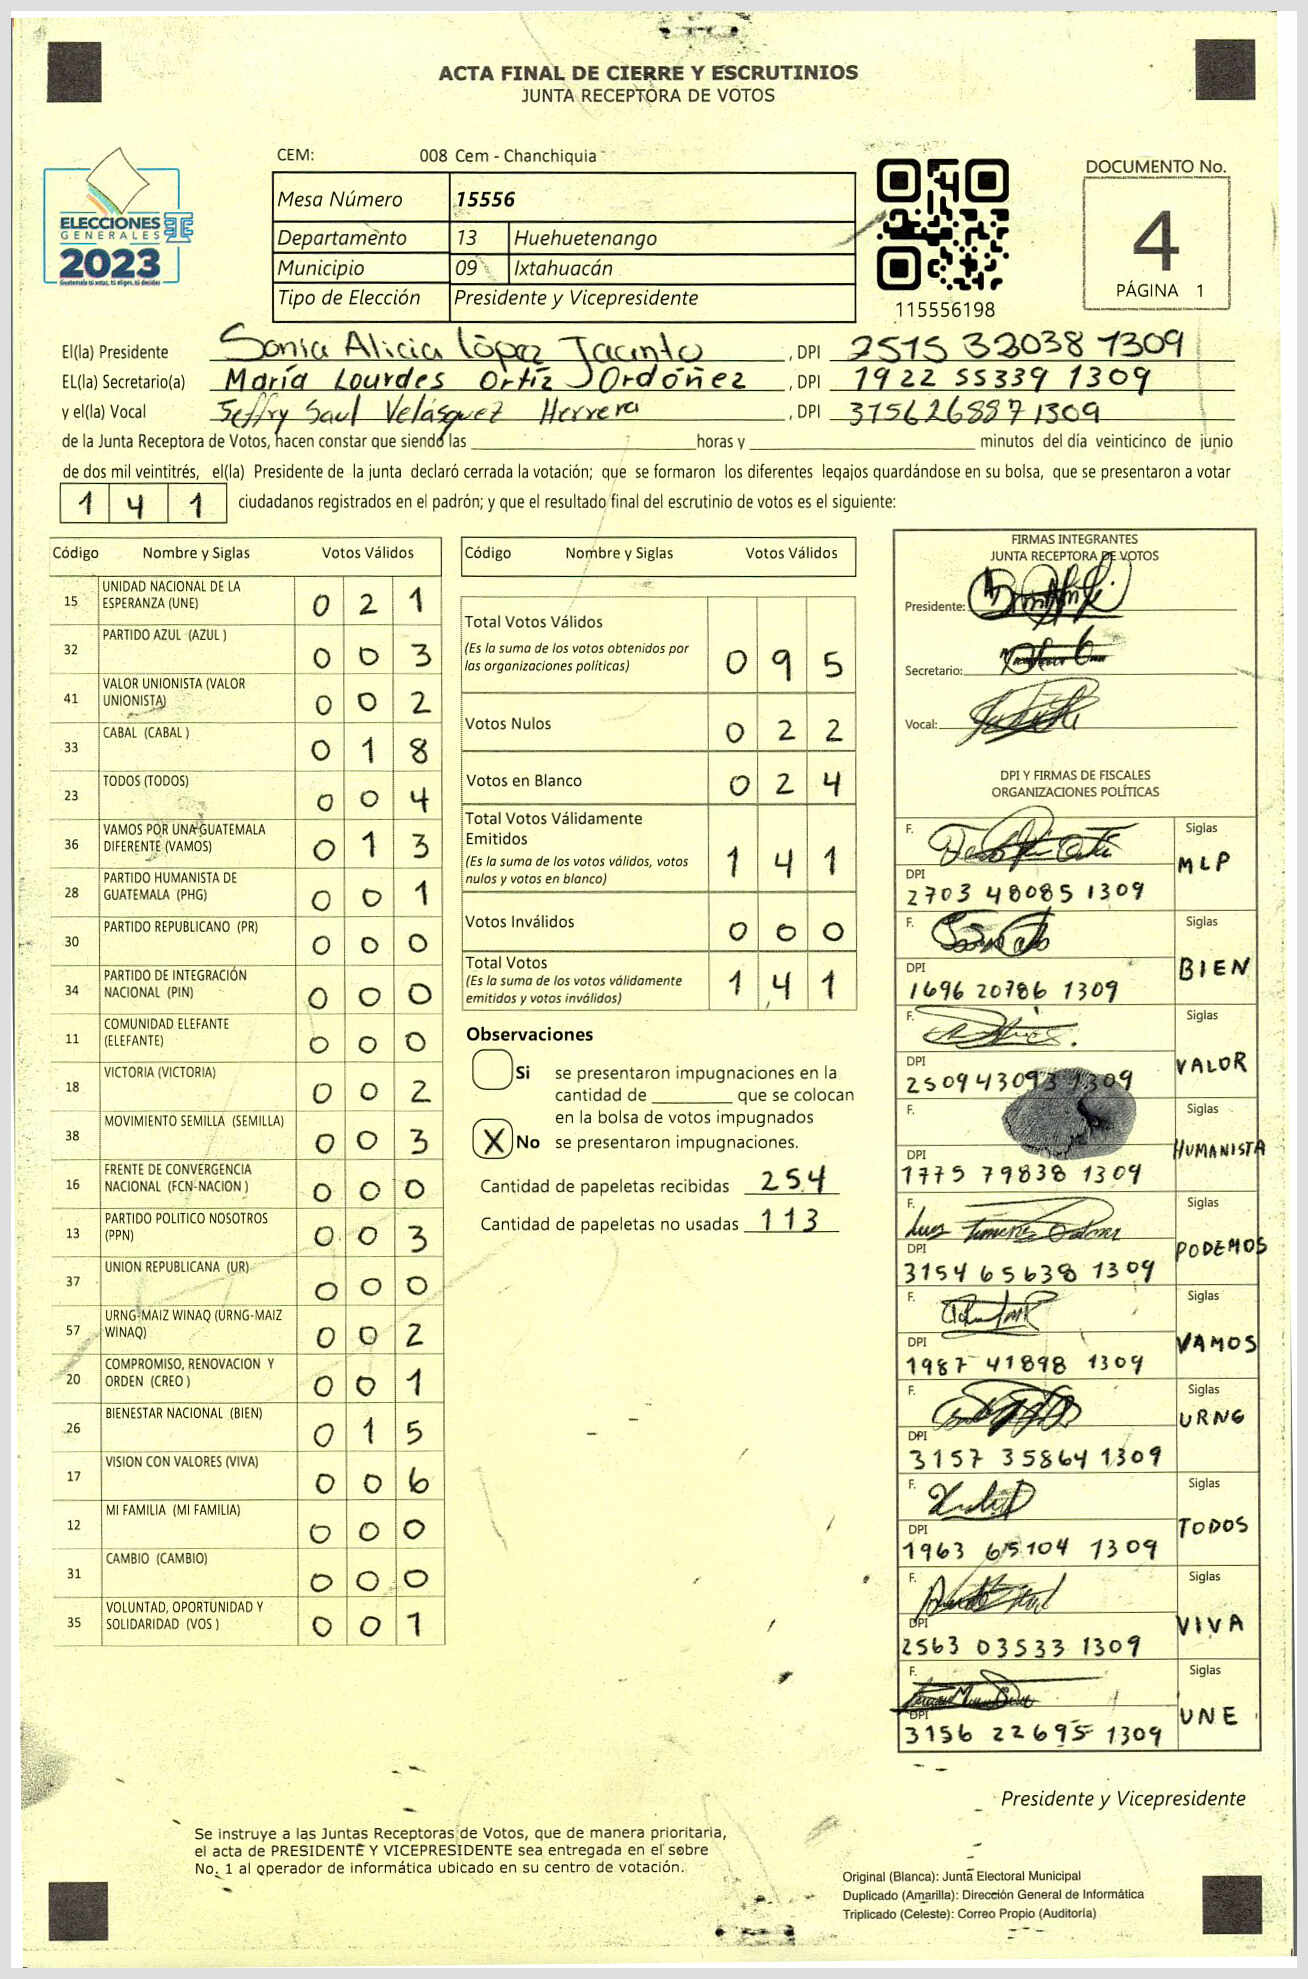 ACTA FINAL DE CIERRE Y ESCRUTINIOS
JUNTA RECEPTORA DE VOTOS
CEM: 008 Cem - Chanchiquia
ELECCIONES
GENERALES
2023
Guatemala tú votas, tú eliges, tú decides
Mesa Número 15556
Departamento 13 Huehuetenango
Municipio 09 Ixtahuacán
Tipo de Elección Presidente y Vicepresidente
115556198
DOCUMENTO No.
4
PÁGINA 1
El(la) Presidente Sonia Alicia López Jacinto, DPI 2515 32038 1309
EL(la) Secretario(a) María Lourdes Ortíz Ordóñez, DPI 1922 55339 1309
y el(la) Vocal Jeffry Saul Velásquez Herrera, DPI 3156268871309
de la Junta Receptora de Votos, hacen constar que siendo las ____ horas y ____ minutos del día veinticinco de junio
de dos mil veintitrés, el(la) Presidente de la junta declaró cerrada la votación; que se formaron los diferentes legajos guardándose en su bolsa, que se presentaron a votar
1 4 1 ciudadanos registrados en el padrón; y que el resultado final del escrutinio de votos es el siguiente:
Código Nombre y Siglas Votos Válidos
15 UNIDAD NACIONAL DE LA ESPERANZA (UNE) 0 2 1
32 PARTIDO AZUL (AZUL ) 0 0 3
41 VALOR UNIONISTA (VALOR UNIONISTA) 0 0 2
33 CABAL (CABAL ) 0 1 8
23 TODOS (TODOS) 0 0 4
36 VAMOS POR UNA GUATEMALA DIFERENTE (VAMOS) 0 1 3
28 PARTIDO HUMANISTA DE GUATEMALA (PHG) 0 0 1
30 PARTIDO REPUBLICANO (PR) 0 0 0
34 PARTIDO DE INTEGRACIÓN NACIONAL (PIN) 0 0 0
11 COMUNIDAD ELEFANTE (ELEFANTE) 0 0 0
18 VICTORIA (VICTORIA) 0 0 2
38 MOVIMIENTO SEMILLA (SEMILLA) 0 0 3
16 FRENTE DE CONVERGENCIA NACIONAL (FCN-NACION ) 0 0 0
13 PARTIDO POLITICO NOSOTROS (PPN) 0 0 3
37 UNION REPUBLICANA (UR) 0 0 0
57 URNG-MAIZ WINAQ (URNG-MAIZ WINAQ) 0 0 2
20 COMPROMISO, RENOVACION Y ORDEN (CREO ) 0 0 1
26 BIENESTAR NACIONAL (BIEN) 0 1 5
17 VISION CON VALORES (VIVA) 0 0 6
12 MI FAMILIA (MI FAMILIA) 0 0 0
31 CAMBIO (CAMBIO) 0 0 0
35 VOLUNTAD, OPORTUNIDAD Y SOLIDARIDAD (VOS ) 0 0 1
Código Nombre y Siglas Votos Válidos
Total Votos Válidos
(Es la suma de los votos obtenidos por las organizaciones políticas) 0 9 5
Votos Nulos 0 2 2
Votos en Blanco 0 2 4
Total Votos Válidamente Emitidos
(Es la suma de los votos válidos, votos nulos y votos en blanco) 1 4 1
Votos Inválidos 0 0 0
Total Votos
(Es la suma de los votos válidamente emitidos y votos inválidos) 1 4 1
Observaciones
Si se presentaron impugnaciones en la
cantidad de ____ que se colocan
en la bolsa de votos impugnados
X No se presentaron impugnaciones.
Cantidad de papeletas recibidas 254
Cantidad de papeletas no usadas 113
FIRMAS INTEGRANTES
JUNTA RECEPTORA DE VOTOS
Presidente:
Secretario:
Vocal:
DPI Y FIRMAS DE FISCALES
ORGANIZACIONES POLÍTICAS
F. Siglas
MLP
DPI
2703 48085 1309
F. Siglas
BIEN
DPI
1696 20786 1309
F. Siglas
VALOR
DPI
2509 43093 1309
F. Siglas
HUMANISTA
DPI
1775 79838 1309
F. Siglas
PODEMOS
DPI
3154 65638 1309
F. Siglas
VAMOS
DPI
1987 41898 1309
F. Siglas
URNG
DPI
3157 35864 1309
F. Siglas
TODOS
DPI
1963 65104 1309
F. Siglas
VIVA
DPI
2563 03533 1309
F. Siglas
UNE
DPI
3156 22695 1309
Presidente y Vicepresidente
Se instruye a las Juntas Receptoras de Votos, que de manera prioritaria,
el acta de PRESIDENTE Y VICEPRESIDENTE sea entregada en el sobre
No. 1 al operador de informática ubicado en su centro de votación.
Original (Blanca): Junta Electoral Municipal
Duplicado (Amarilla): Dirección General de Informática
Triplicado (Celeste): Correo Propio (Auditoría)